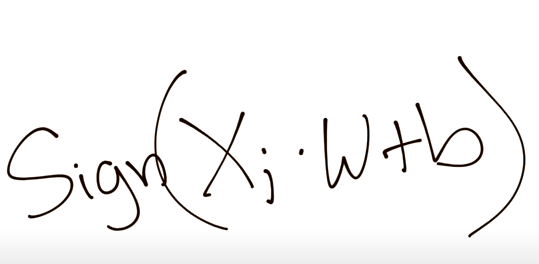 Sign(Xi·W+b)